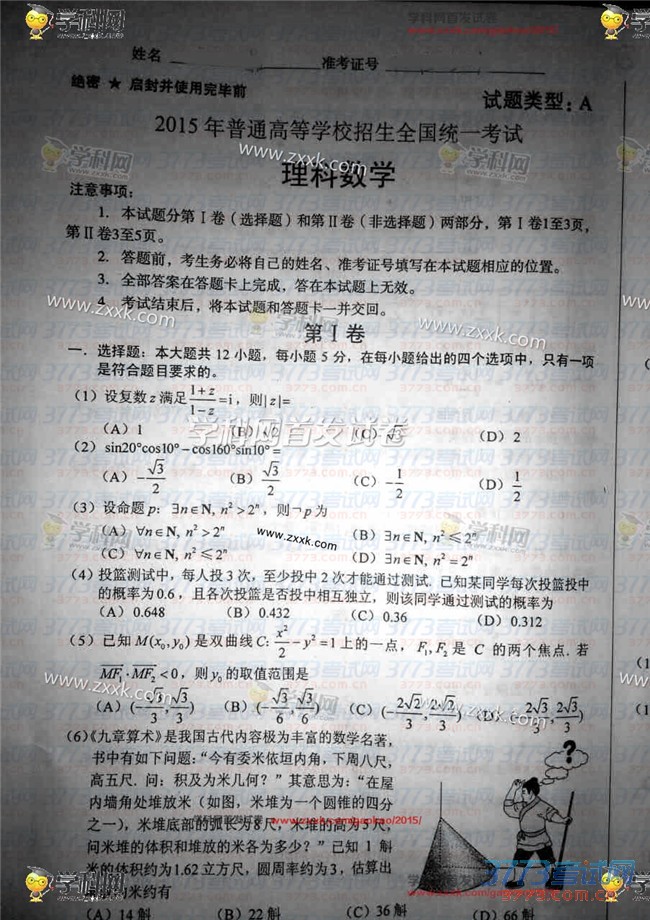 学科网首发试卷
www.zxxk.com/gaokao/2015/
学科网
姓名 准考证号
绝密 ★ 启封并使用完毕前
试题类型：A
2015年普通高等学校招生全国统一考试
www.zxxk.com
理科数学
注意事项：
1. 本试题分第Ⅰ卷（选择题）和第Ⅱ卷（非选择题）两部分，第Ⅰ卷1至3页，
第Ⅱ卷3至5页。
2. 答题前，考生务必将自己的姓名、准考证号填写在本试题相应的位置。
3. 全部答案在答题卡上完成，答在本试题上无效。
4. 考试结束后，将本试题和答题卡一并交回。
www.zxxk.com
www.zxxk.com
第Ⅰ卷
一．选择题：本大题共12小题，每小题5分，在每小题给出的四个选项中，只有一项
是符合题目要求的。
（1）设复数z满足(1+z)/(1-z)=i，则|z|=
（A）1 （B）√2 （C）√3 （D）2
学科网首发试卷
（2）sin20°cos10°－cos160°sin10°=
（A）-√3/2 （B）√3/2 （C）-1/2 （D）1/2
（3）设命题p：∃n∈N, n²>2ⁿ，则¬p为
（A）∀n∈N, n²>2ⁿ （B）∃n∈N, n²≤2ⁿ
www.zxxk.com
（C）∀n∈N, n²≤2ⁿ （D）∃n∈N, n²=2ⁿ
（4）投篮测试中，每人投3次，至少投中2次才能通过测试. 已知某同学每次投篮投中
的概率为0.6，且各次投篮是否投中相互独立，则该同学通过测试的概率为
（A）0.648 （B）0.432 （C）0.36 （D）0.312
（5）已知M(x₀,y₀)是双曲线C: x²/2-y²=1上的一点，F₁,F₂是 C 的两个焦点. 若
MF₁·MF₂<0，则y₀的取值范围是
www.zxxk.com
（A）(-√3/3,√3/3) （B）(-√3/6,√3/6) （C）(-2√2/3,2√2/3) （D）(-2√3/3,2√3/3)
（6）《九章算术》是我国古代内容极为丰富的数学名著，
书中有如下问题：“今有委米依垣内角，下周八尺，
高五尺. 问：积及为米几何？”其意思为：“在屋
内墙角处堆放米（如图，米堆为一个圆锥的四分
之一），米堆底部的弧长为8尺，米堆的高为5尺，
问米堆的体积和堆放的米各为多少？”已知1斛
米的体积约为1.62立方尺，圆周率约为3，估算出
米约有
（A）14斛 （B）22斛 （C）36斛 （D）66斛
?
3773考试网
3773.com.cn